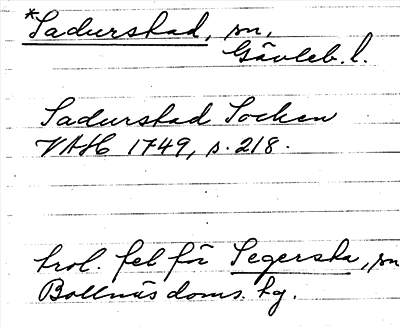 *Sadurstad, sn,
Gävleb. l.
Sadurstad Socken
VAH 1749, s. 218.
trol. fel för Segersta, sn
Bollnäs doms. hg.